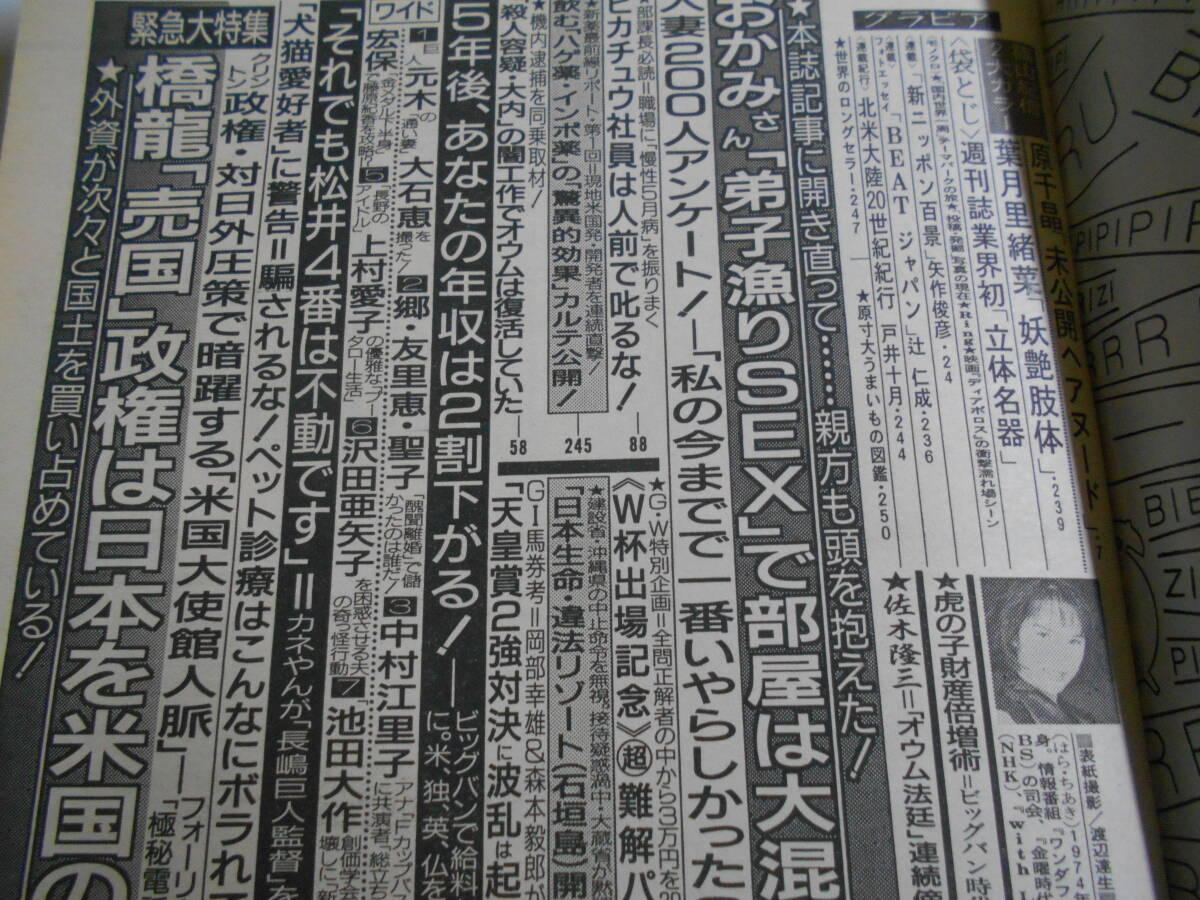 グラビア
原千晶 未公開ヘアヌード
葉月里緒菜「妖艶肢体」・239
〈袋とじ〉週刊誌業界初「立体名器」
〈連載〉「新ニッポン百景」矢作俊彦・24
フォトエッセイ「BEAT ジャパン」辻 仁成・236
〈連載紀行〉北米大陸20世紀紀行 戸井十月・244
★世界のロングセラー・247
★原寸大うまいもの図鑑・250
■表紙撮影/渡辺達生
(はら・ちあき)1974年
身。情報番組『ワンダフ
BS)の司会、『金曜時代
(NHK)、『with l
★虎の子財産倍増術＝ビッグバン時代
★佐木隆三＝「オウム法廷」連続傍
★本誌記事に開き直って……親方も頭を抱えた！
おかみさん「弟子漁りSEX」で部屋は大混
人妻200人アンケート！「私の今までで一番いやらしかった
★部課長必読＝職場に「慢性5月病」を振りまく
ピカチュウ社員は人前で叱るな！
88
★新春最前線リポート・第1回＝現地米国発・開発者を連続直撃！
飲む「ハゲ薬・インポ薬」の「驚異的効果」カルテ公開！
245
★機内逮捕を同乗取材！
殺人容疑・大内」の闇工作でオウムは復活していた
58
★G・W特別企画＝全問正解者の中から3万円を20
《W杯出場記念》超難解パ
★建設省、沖縄県の中止命令を無視。接待疑惑渦中・大蔵省が黙
「日本生命・違法リゾート(石垣島)開
GI馬券考＝岡部幸雄&森本毅郎が
「天皇賞2強対決」に波乱は起
5年後、あなたの年収は2割下がる！
ビッグバンで給料
に。米、独、英、仏を
ワイド
1 巨人 元木の「通い妻」大石恵を撮った！
2 郷・友里恵・聖子「醜聞離婚」で儲かったのは誰だ！
3 中村江里子アナ「Fカップバス
に共演者、総立ち
宏保「金メダルで半身」で藤原紀香を攻略!?
5 「長野のアイドル」上村愛子の優雅な「プータロー生活」
6 沢田亜矢子を困惑させる夫の奇っ怪行動
7 「池田大作」
創価学会
壊しに「新
「それでも松井4番は不動です」＝カネやんが「長嶋巨人監督」を
「犬猫愛好者」に警告＝騙されるな！ペット診療はこんなにボラれて
クリントン政権・対日外圧策で暗躍する「米国大使館人脈」
フォーリ
「極秘電
緊急大特集
橋龍「売国」政権は日本を米国の
★外資が次々と国土を買い占めている！